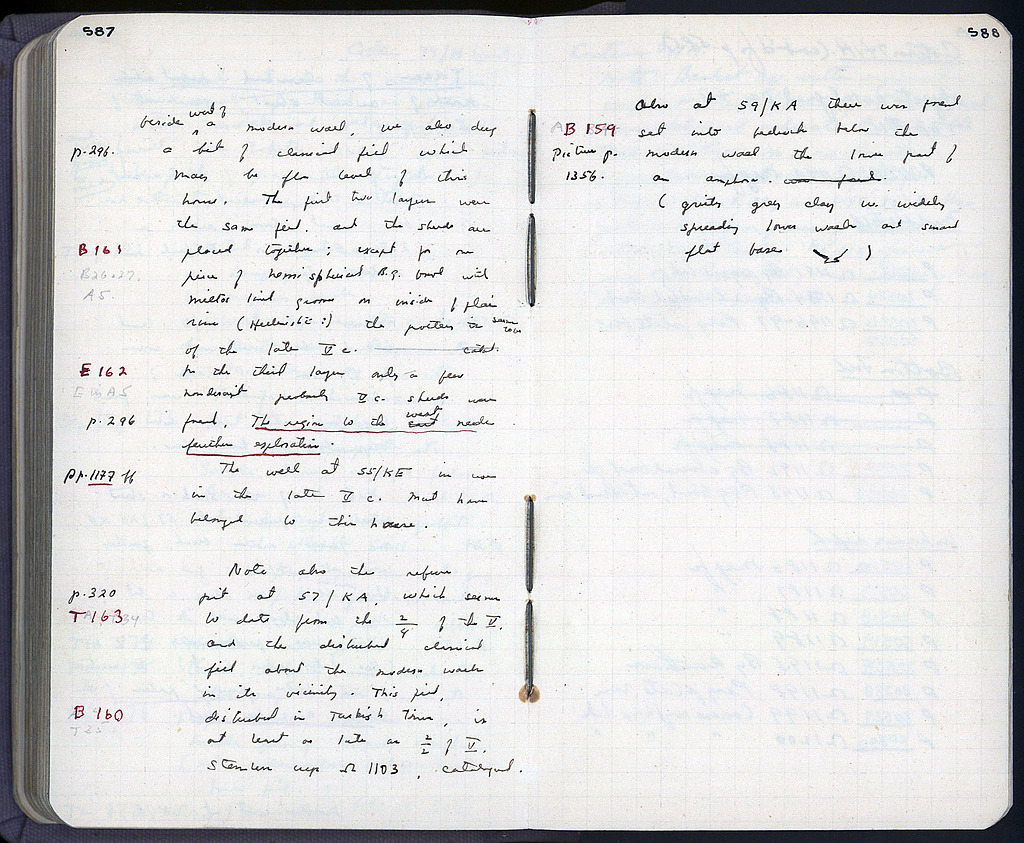 587
beside west of a modern wall, we also dug
p. 296. a bit of classical fill which
may be floor level of this
house. The first two layers were
the same fill, and the sherds are
B 161 placed together; except for one
B26-27 piece of hemispherical B.g. bowl with
A5. miltos lined groove on inside of plain
rim (Hellenistic?) the pottery is same to us
of the late V c.
E 162 In the third layer only a few
E in A5 nondescript probably V c. sherds were
p. 296 found. The region to the west needs
further exploration.
pp. 1177 ff The well at 55/KE in use
in the late V c. must have
belonged to this house.
Note also the refuse
p. 320 pit at 57/KA, which seems
T 163 to date from the 2/4 of the V.
and the disturbed classical
fill about the modern walls
in its vicinity. This fill,
B 160 disturbed in Turkish times, is
at least as late as 2/2 of V.
Stemless cup Ω 1103, catalogued.
588
Also at 59/KA there was found
B 159 set into bedrock below the
Picture p. modern wall the lower part of
1356. an amphora. was found.
(gritty grey clay w. widely
spreading lower walls and small
flat base )